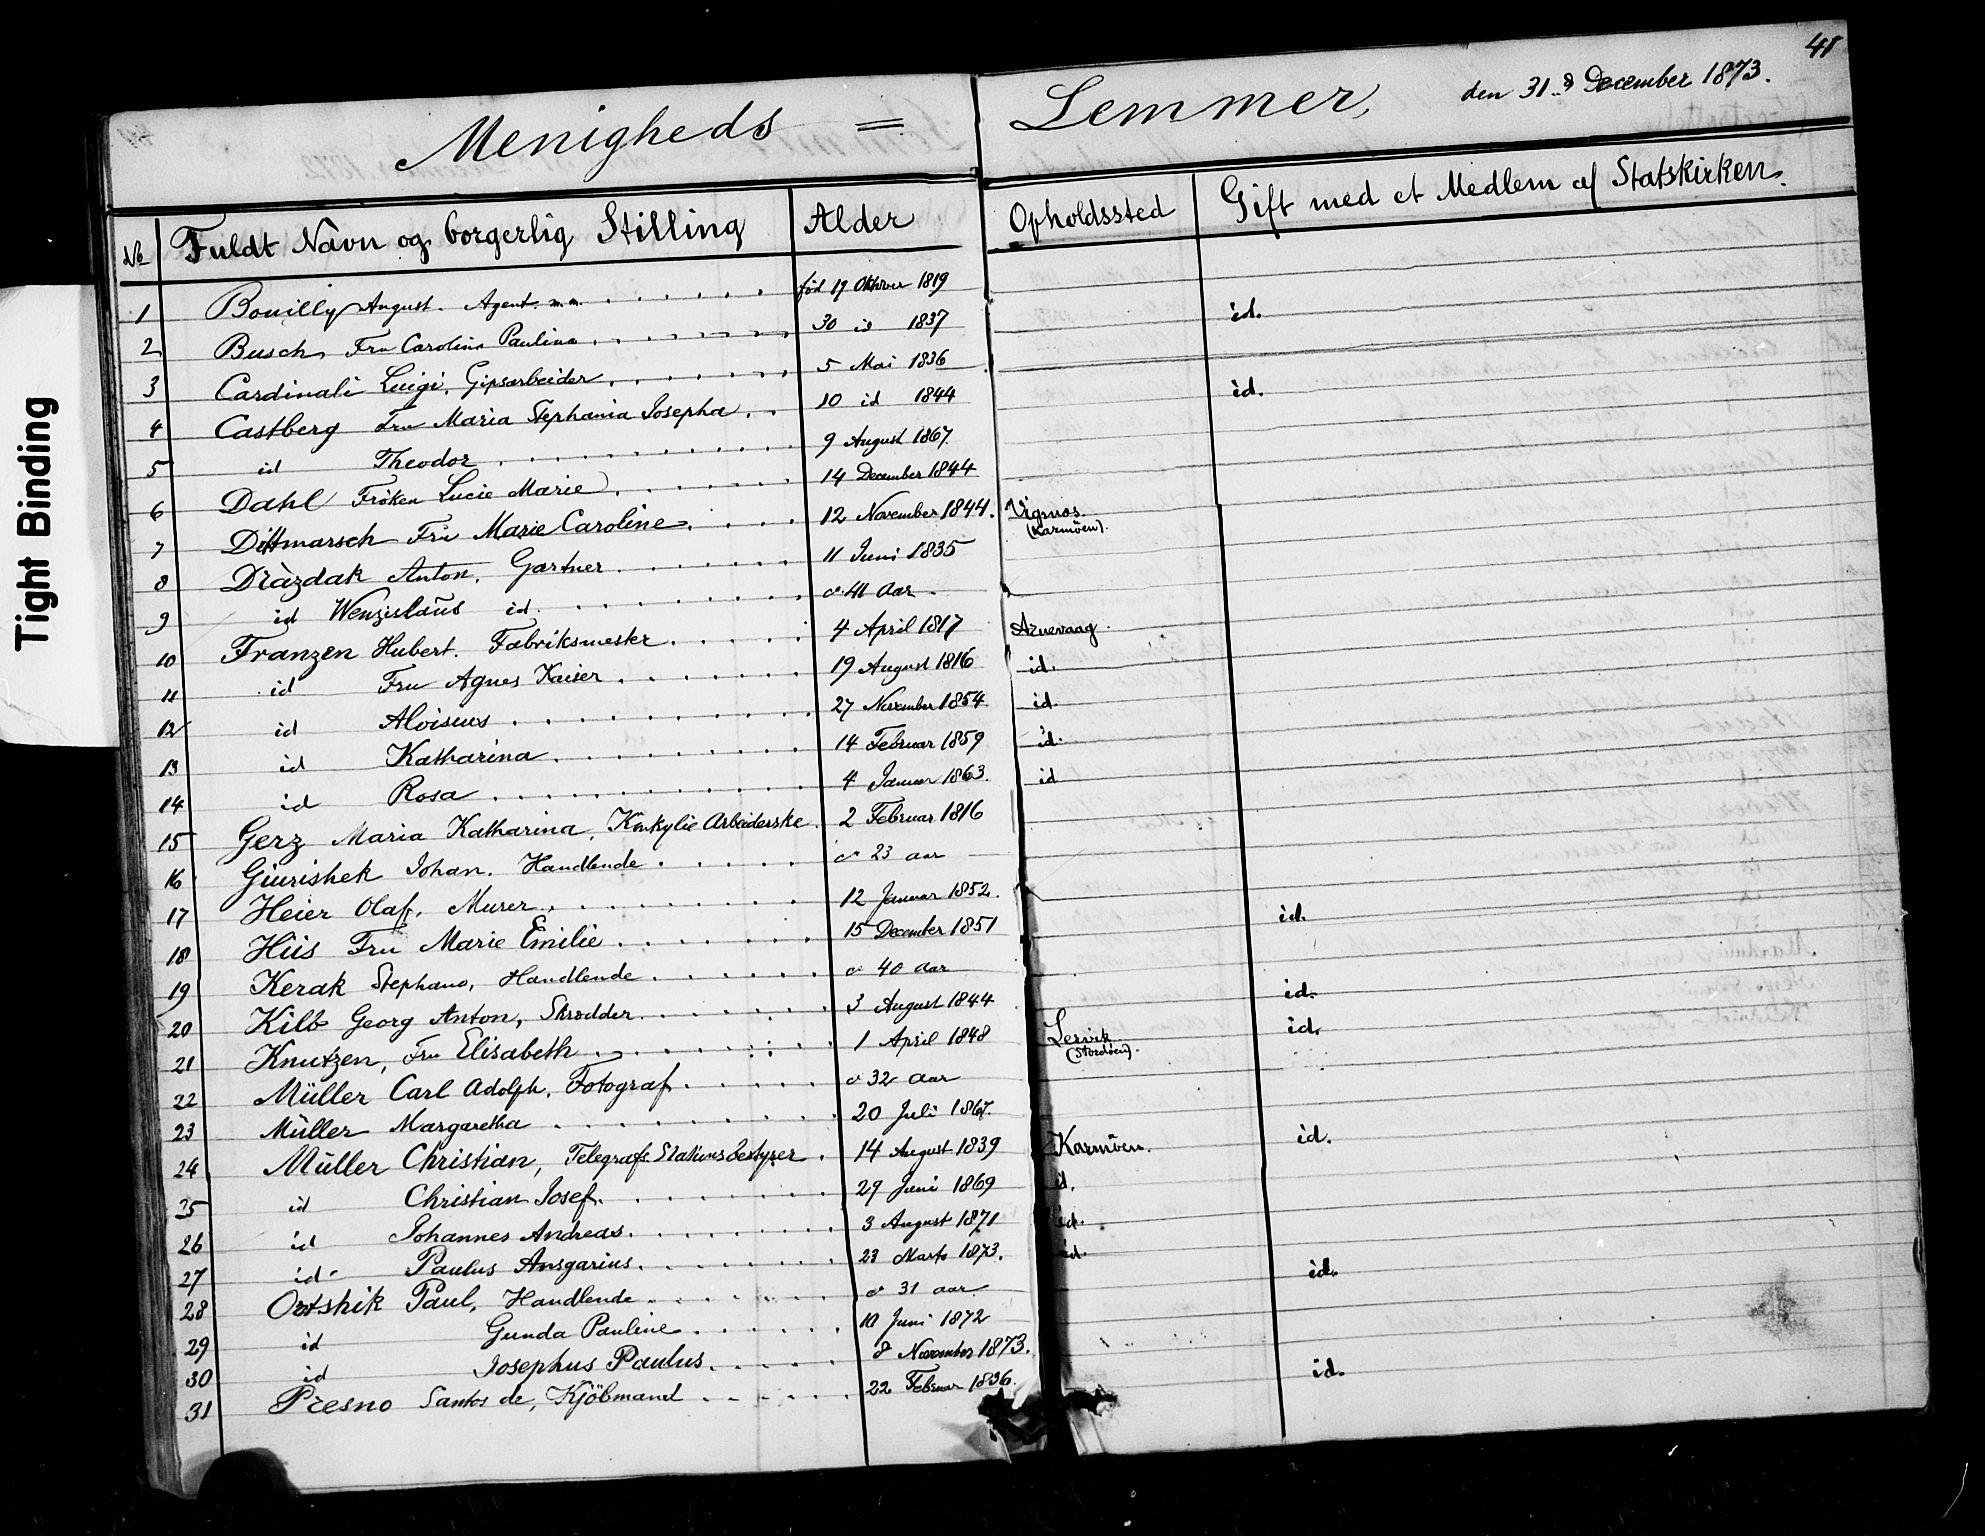 41
Menigheds = Lemmer, den 31.s December 1873.
No Fuldt Navn og borgerlig Stilling Alder Opholdssted Gift med et Medlem af Statskirken.
1 Bouilly August. Agent m.m. . . . . . . . fød 19 Oktober 1819 id.
2 Busch, Fru Carolina Paulina . . . . . . . 30 id 1837
3 Cardinali Luigi, Gipsarbeider . . . . . . . 5 Mai 1836 id.
4 Castberg Fru Maria Stephania Josepha . . 10 id 1844
5 id Theodor . . . . . . . . . . . 9 August 1867.
6 Dahl Frøken Lucie Marie . . . . . . . 14 December 1844
7 Dittmarsch Fru Marie Caroline . . . . 12 November 1844. Vigsnæs. (Karmöen).
8 Dràzdak Anton, Gartner . . . . . . . 11 Juni 1835
9 id Wenzislaus id. . . . . . . . . . 41 Aar
10 Franzen Hubert. Fabriksmester . . . . 4 April 1817 Arnevaag.
11 id Fru Agnes Kaiser . . . . . . . 19 August 1816 id.
12 id Aloisius . . . . . . . . . . 27 November 1854. id.
13 id Katharina . . . . . . . . . 14 Februar 1859 id.
14 id Rosa . . . . . . . . . . . 4 Januar 1863. id
15 Gerz Maria Katharina, Konkylie Arbeiderske. 2 Februar 1816
16 Giurishek Johan. Handlende . . . . . 23 aar
17 Heier Olaf, Murer . . . . . . . . 12 Januar 1852. id.
18 Hiis Fru Marie Emilie . . . . . . 15 December 1851
19 Kerak Stephano, Handlende . . . . . 40 aar id.
20 Kilb Georg Anton, Skrædder . . . . . 3 August 1844 id.
21 Knutzen, Fru Elisabeth . . . . . . . 1 April 1848 Lervik (Stordöen).
22 Müller Carl Adolph, Fotograf . . . . . 32 aar
23 Müller Margaretha . . . . . . . . 20 Juli 1867. id.
24 Müller Christian, Telegrafs Stationsbestyrer . 14 August 1839 Karmöen.
25 id Christian Josef . . . . . . . 29 Juni 1869 id.
26 id Johannes Andreas . . . . . . 3 August 1871 id.
27 id Paulus Ansgarius . . . . . . 23 Marts 1873. id. id.
28 Ortshik Paul, Handlende . . . . . . 31 aar
29 id Gunda Pauline . . . . . . 10 Juni 1872
30 id Josephus Paulus . . . . 8 November 1873. id.
31 Presno Santos de, Kjöbmand . . . . 22 Februar 1836.
Tight Binding